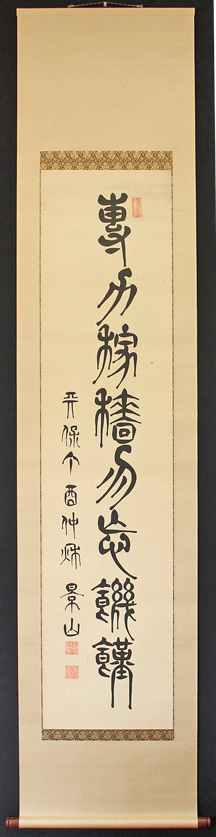 專力稼穡勿忘饑饉
天保丁酉仲秋 景山